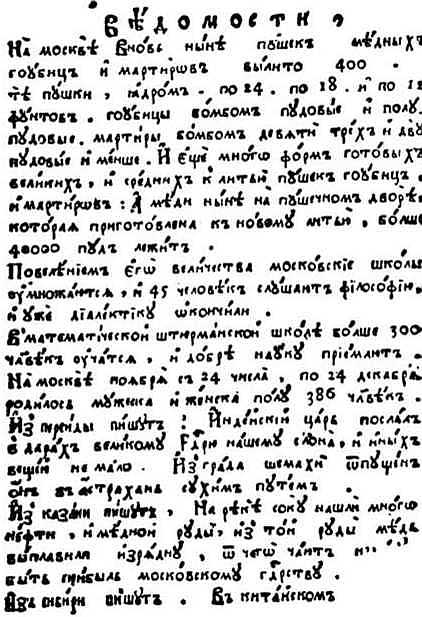 вѣдомости,
На москвѣ вновь нынѣ пушек мѣдныхъ
гоубицъ и мартиръωвъ вылито 400.
тѣ пушки, ядромъ. по 24. по 18. и по 12
фунтовъ. гоубицы бомбомъ пудовые и полу
пудовые. мартиры бомбом девяти трехъ и дву
пудовые и менше. И еще много формъ готовыхъ
великихъ, и среднихъ к литью пушек гоубицъ,
и мартирωвъ: А мѣди нынѣ на пушечном дворѣ,
которая приготовлена къ новому литью, болше
40000 пудъ лежитъ.
Повелѣниемъ егω величества московские школы
оумножаются, и 45 человѣкъ слушаютъ философию,
и уже диалектику ωкончили.
В математической штюрманской школѣ болше 300
члвѣкъ оучатся, и добрѣ науку приемлютъ.
На москвѣ ноября съ 24 числа, по 24 декабря
родилось мужеска и женска полу 386 члвѣкъ.
Из персиды пишутъ: Индѣйский царь послалъ
в дарахъ великому Гдрю нашему слона, и иныхъ
вещей не мало. Из града шемахи ѿпущенъ
онъ въ астрахань сухимъ путемъ.
Из казани пишутъ, На рѣкѣ соку нашли многω
нефти, и мѣдной руды, из той руды мѣдь
выплавили изрядну, ѿ чегω чаютъ
быть прибыль московскому гдрству.
Из сибири пишутъ. Въ китайском